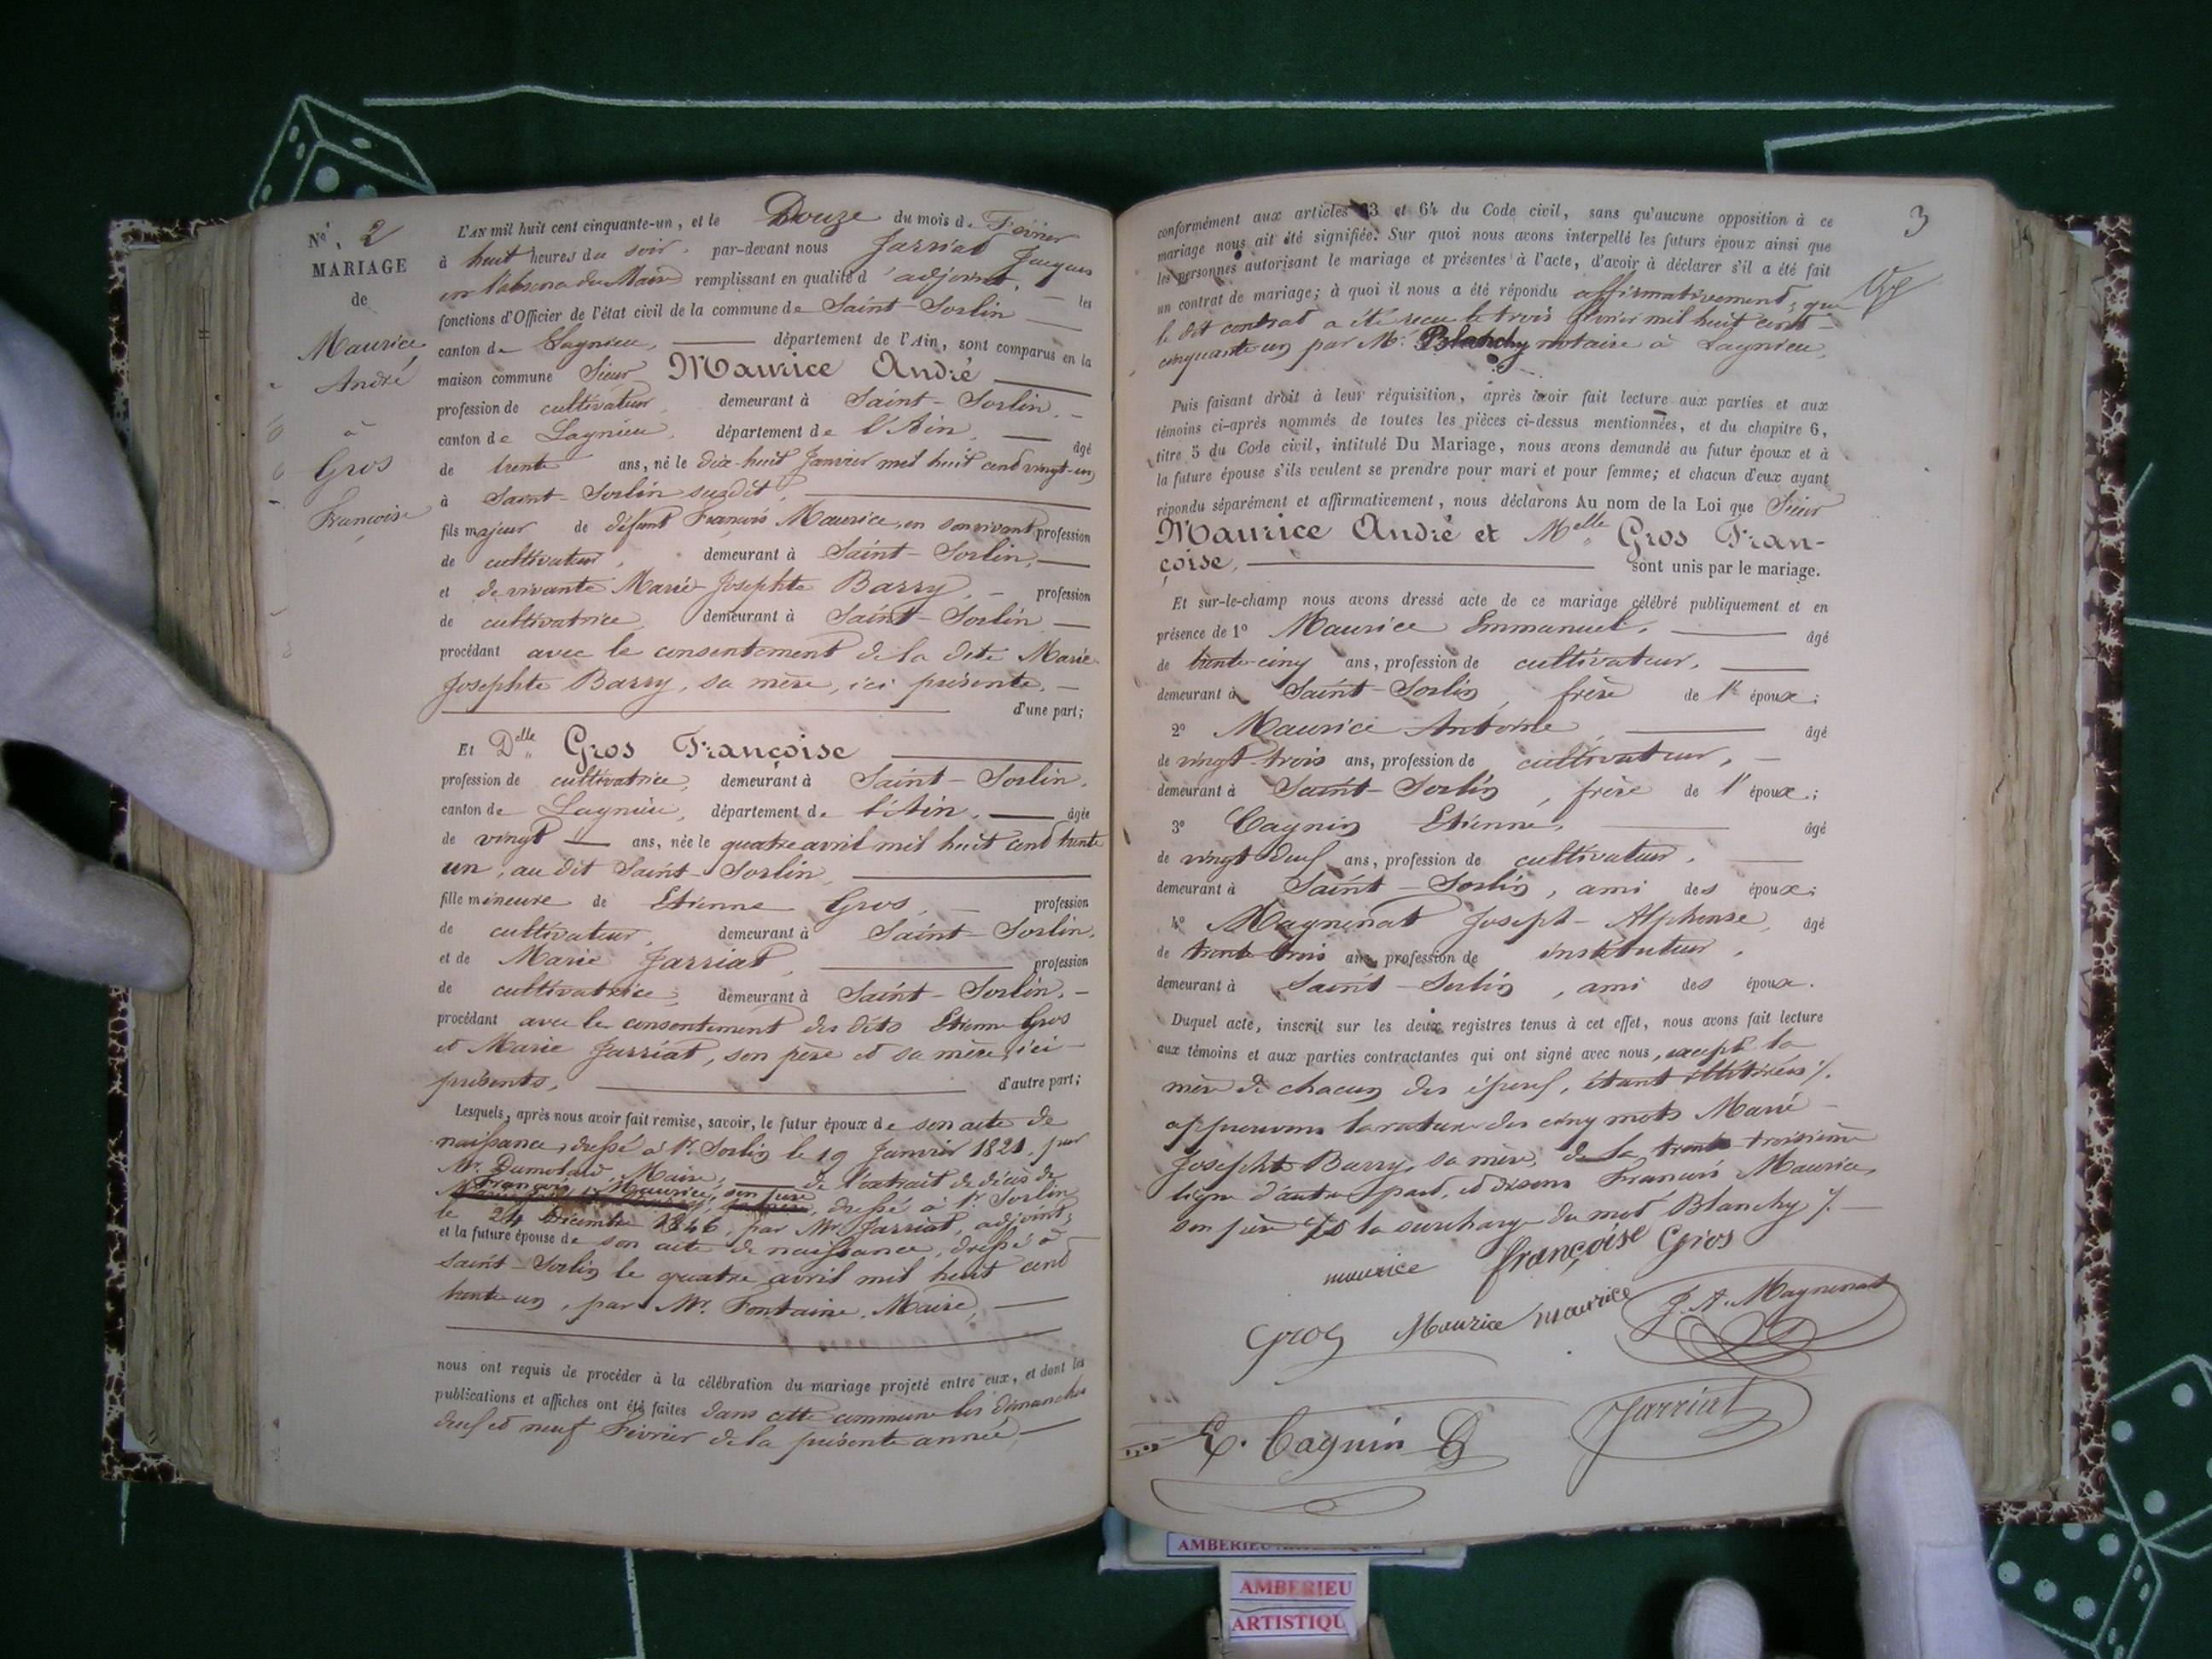 N.º 2
MARIAGE
de
Maurice
André
à
Gros
Françoise
L'AN mil huit cent cinquante-un, et le Douze du mois de Février
à huit heures du soir, par-devant nous Jarriat Jacques
en l'absence du Maire remplissant en qualité d'adjoint, les
fonctions d'Officier de l'état civil de la commune de Saint-Sorlin
canton de Lagnieu, département de l'Ain, sont comparus en la
maison commune Sieur Maurice André
profession de cultivateur, demeurant à Saint-Sorlin,
canton de Lagnieu, département de l'Ain, âgé
de trente ans, né le dix-huit Janvier mil huit cent vingt-un
à Saint-Sorlin susdit,
fils majeur de défunt François Maurice, en son vivant profession
de cultivateur, demeurant à Saint-Sorlin,
et de vivante Marie-Josephte Barry, profession
de cultivatrice, demeurant à Saint-Sorlin
procédant avec le consentement de la dite Marie-
Josephte Barry, sa mère, ici présente,
d'une part;
Et Delle Gros Françoise
profession de cultivatrice, demeurant à Saint-Sorlin,
canton de Lagnieu, département de l'Ain, âgée
de vingt ans, née le quatre avril mil huit cent trente
un, au dit Saint-Sorlin,
fille mineure de Etienne Gros, profession
de cultivateur, demeurant à Saint-Sorlin,
et de Marie Jarriat, profession
de cultivatrice, demeurant à Saint-Sorlin,
procédant avec le consentement des dits Etienne Gros
et Marie Jarriat, son père et sa mère, ici
présents, d'autre part;
Lesquels, après nous avoir fait remise, savoir, le futur époux de son acte de
naissance, dressé à St. Sorlin le 19 Janvier 1821, par
Mr. Dumolard, Maire, de l'extrait de décès de
François Maurice, son père, dressé à St. Sorlin
le 24 Décembre 1846, par Mr. Jarriat, adjoint;
et la future épouse de son acte de naissance, dressé à
Saint-Sorlin le quatre avril mil huit cent
trente un, par Mr. Fontaine, Maire,
nous ont requis de procéder à la célébration du mariage projeté entre eux, et dont les
publications et affiches ont été faites dans cette commune les dimanches
deux et neuf Février de la présente année
3
conformément aux articles 63 et 64 du Code civil, sans qu'aucune opposition à ce
mariage nous ait été signifiée. Sur quoi nous avons interpellé les futurs époux ainsi que
les personnes autorisant le mariage et présentes à l'acte, d'avoir à déclarer s'il a été fait
un contrat de mariage; à quoi il nous a été répondu affirmativement, que
le dit contrat a été reçu le trois février mil huit cent
cinquante un par Mr. Blanchy notaire à Lagnieu,
Puis faisant droit à leur réquisition, après avoir fait lecture aux parties et aux
témoins ci-après nommés de toutes les pièces ci-dessus mentionnées, et du chapitre 6,
titre 5 du Code civil, intitulé Du Mariage, nous avons demandé au futur époux et à
la future épouse s'ils veulent se prendre pour mari et pour femme; et chacun d'eux ayant
répondu séparément et affirmativement, nous déclarons Au nom de la Loi que Sieur
Maurice André et Melle Gros Fran-
çoise, sont unis par le mariage.
Et sur-le-champ nous avons dressé acte de ce mariage célébré publiquement et en
présence de 1º Maurice Emmanuel, âgé
de trente-cinq ans, profession de cultivateur,
demeurant à Saint-Sorlin, frère de l' époux;
2º Maurice Antoine âgé
de vingt-trois ans, profession de cultivateur,
demeurant à Saint-Sorlin, frère de l' époux;
3º Cagnin Etienne, âgé
de vingt deux ans, profession de cultivateur,
demeurant à Saint-Sorlin, ami des époux;
4º Magnenat Joseph-Alphonse, âgé
de trente trois ans, profession de instituteur,
demeurant à Saint-Sorlin, ami des époux.
Duquel acte, inscrit sur les deux registres tenus à cet effet, nous avons fait lecture
aux témoins et aux parties contractantes qui ont signé avec nous, excepté la
mère de chacun des époux, étant illettrées /.
approuvons la rature des cinq mots Marie
Josephte Barry, sa mère, de la trente-troisième
ligne d'autre part, et disons François Maurice,
son père et la surcharge du mot Blanchy /.
maurice françoise Gros
Gros Maurice maurice J. A. Magnenat
E. Cagnin Jarriat
AMBERIEU
AMBERIEU
ARTISTIQU